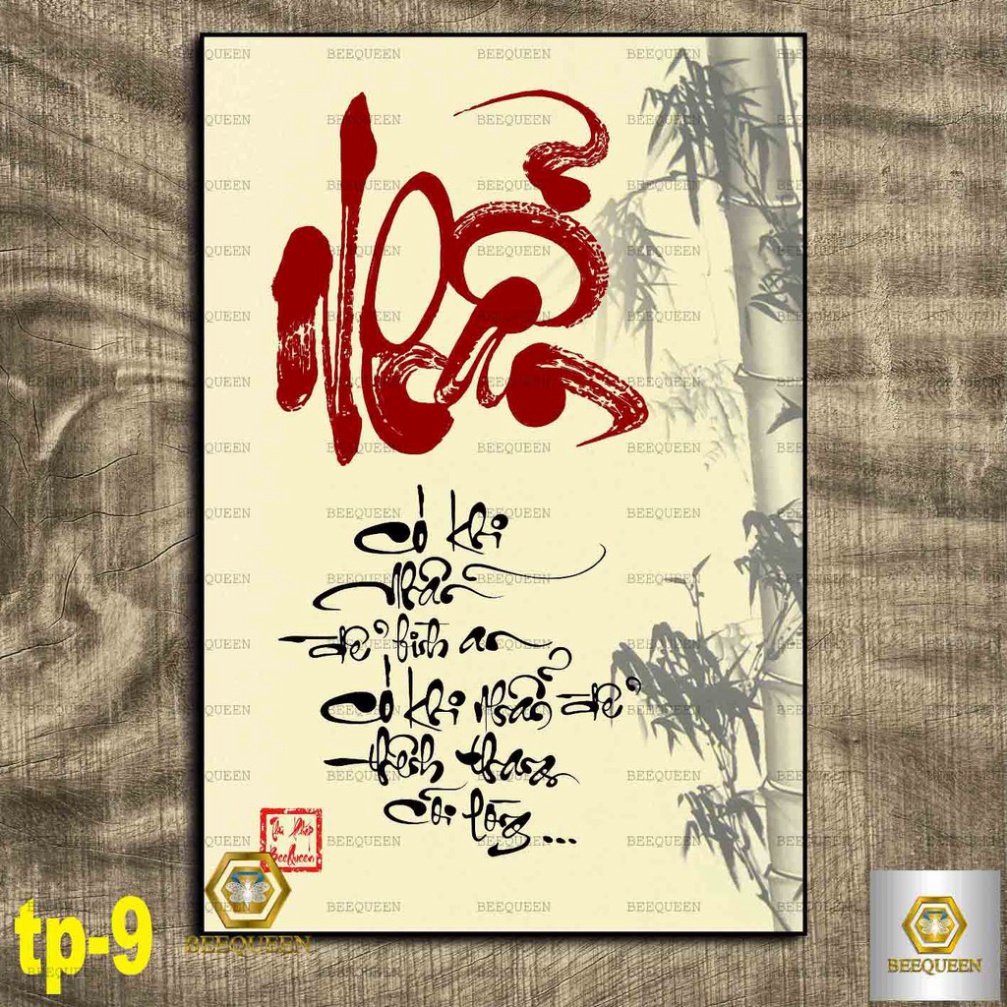 Nhẫn
Có khi
Nhẫn
để bình an
Có khi nhẫn để
thênh thang
cõi lòng...
Thư Pháp
BeeQueen
BEEQUEEN
tp-9
BEEQUEEN